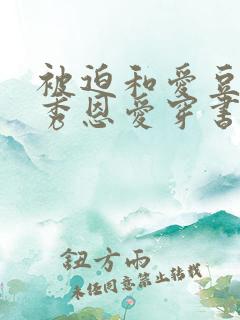 被迫和愛豆
秀恩愛穿書
鈕方雨
未经同意禁止转载